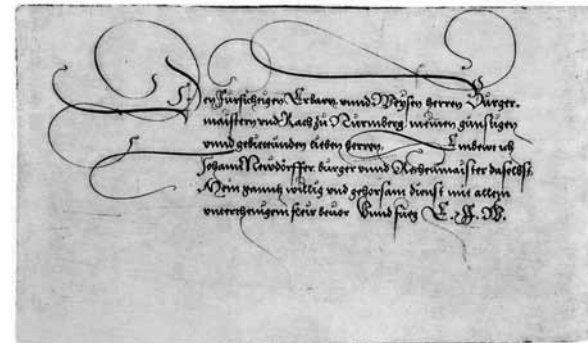 Den Fürsichtigen Erbarn vnnd Weysen herren Burger-
maistern vnd Rath zu Nurmberg, meinen günstigen
vnnd gebiettunden lieben herren, Embeut ich
Johann Newdörffer burger vnnd Rechenmaister daselbst.
Mein ganntz willig vnd gehorsam dienst mit allem
vnterthenigem fleis beuor Vnnd fueg E. F. W.